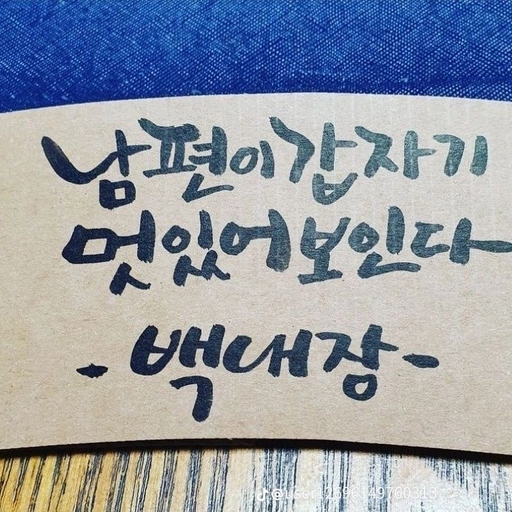 남편이갑자기
멋있어보인다
-백대장-